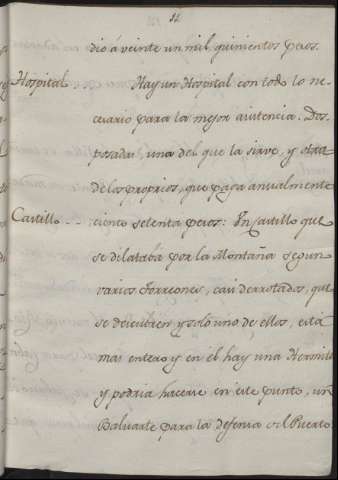 12
dió á veinte un mil quinientos pesos.
Hospital. Hay un Hospital con todo lo ne-
cesario para la mejor asistencia. Dos
posadas, una del que la sirve, y otra
de los proprios, que paga anualmente
Castillo -- ciento setenta pesos: Un Castillo que
se dilataba por la Montaña segun
varios Torreones, casi derrotados, que
se descubren y solo uno de ellos, está
mas entero y en él hay una Hermita
y podria hacerse en este punto, un
Baluarte para la defensa del Puerto